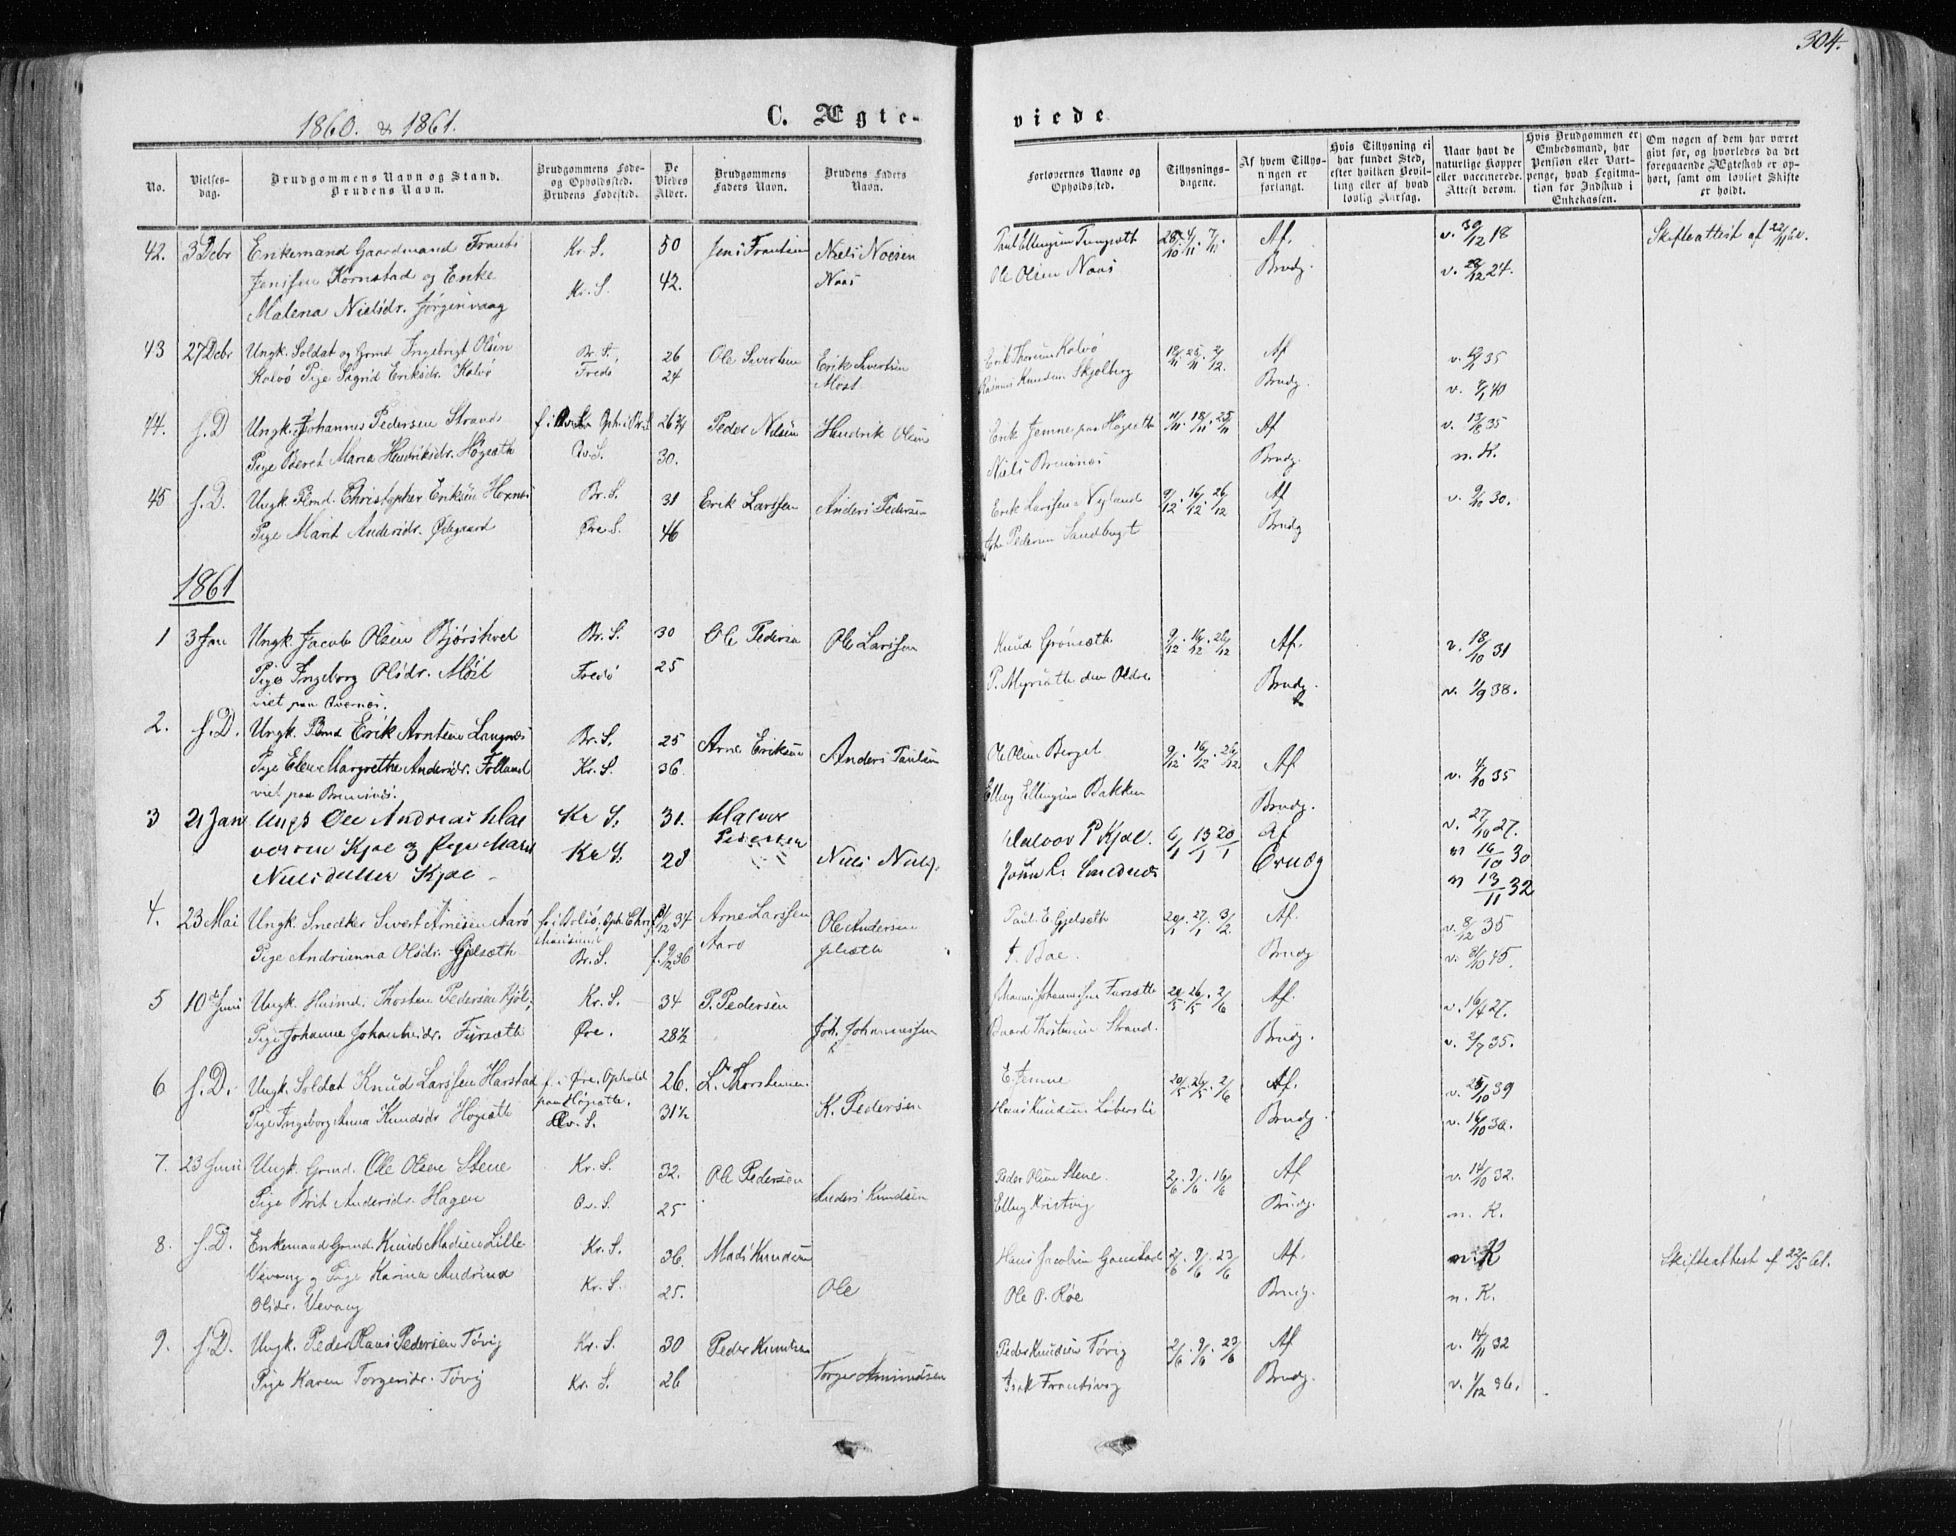 304.
1860. & 1861.
C. Ægte-
viede
No.
Vielses-
dag.
Brudgommens Navn og Stand.
Brudens Navn.
Brudgommens Føde-
og Opholdssted.
Brudens Fødested.
De
Viedes
Alder.
Brudgommens
Faders Navn.
Brudens Faders
Navn.
Forlovernes Navne og
Opholdssted.
Tillysnings-
dagene.
Af hvem Tillys-
ningen er
forlangt.
Hvis Tillysning ei
har fundet Sted,
efter hvilken Bevil-
ling eller af hvad
lovlig Aarsag.
Naar havt de
naturlige Kopper
eller vaccinerede.
Attest derom.
Hvis Brudgommen er
Embedsmand, har
Pension eller Vart-
penge, hvad Legitima-
tion for Indskud i
Enkekassen.
Om nogen af dem har været
givt før, og hvorledes da det
foregaaende Ægteskab er op-
hørt, samt om lovligt Skifte
er holdt.
42. 3 Dcbr Enkemand Gaardmand Frants Kr. S. 50 Jens Frantsen Niels Af. v. 30/12 18 Skifteattest af 22/11 60.
Jensen Kornstad og Enke 42. Naas Ole Olsen Naas Brudg. 24.
Malena Nielsdr. Jørgenvaag Kr. S.
43 27 Dcbr Ungk. Soldat og Grmd Ingebrigt Olsen Br. S. 26 Ole Sivertsen Erik Sivertsen Erik Kalvø 18/11 25/11 2/12. Af 35
Kalvø Pige Sigrid Eriksdr. Kalvø Fredø 24 Most Rasmus Knudsen Skjølberg Brudg. 40
44. s. D Ungk. Johannes Pedersen Strand 26 3/4 Peder Nilsen Hendrik Olsen Erik Jemne paa Høgsæth 11/11 18/11 25/11 Af 35
Pige Beret Maria Hendriksdr. Høgsæth Qv. S. 30. Niels Bremsnes Brudg. n. K.
45 s. D. Ungk. Christopher Eriksen Hornes Br. S. 31 Erik Larssen Anders Pedersen Erik Larssen 9/12 16/12 26/12 Af v. 9/10 30.
Pige Marit Andersdr. Ødegaard Øre S. 46 Pedersen Sandbugt Brudg
1861
1 3 Jan Ungk. Jacob Olsen Br. S. 30 Ole Pedersen Ole Larssen Knud Grønsæth 9/12 16/12 26/12 Af. v. 18/10 31
Pige Ingeborg Olsdr. Møst Fredø 25 Brudg. 38.
viet paa Qvernes.
2. s. D. Ungk. Erik Arntsen Langnes Br. S. 25 Arne Eriksen Anders Paulsen Ole Olsen Berget 9/12 16/12 26/12 Af 35
Pige Elen Margrethe Andersdr. Folland Kr. S. 36. Elling Ellingsen Bakken Brudg.
viet paa Bremsnes.
3 21 Jan Ungk Ole Andreas Hal Kr S. 31. Halvor Halvor P Kjøl. 6/1 13/1 20/1 Af v. 27/10 27.
versen Kjøl og Pige Marit Pedersen Brudg 16/10 30
Nielsdatter Kjøl Kr S. 28 Niels 13/11 32
4. 23 Mai Ungk. Snedker Sivert Arnesen Aarø 34 Arne Larssen Ole Andersen Paul E. Gjelsæth 20/1 27/1 3/2. Af. v. 8/12 35
Aarø
Pige Andrianna Olsdr. Gjelsæth Br. S. 36 Brudg 45.
5 10de Juni Ungk. Husmd. Thosten Pedersen Kjøl. Kr. S. 34 P. Pedersen Johannes Johannessen Fursæth 20/5 26/5 2/6 Af. v. 16/4 27.
Pige Johanne Johannesdr. Fursæth Øre. 28 1/2 Joh. Johannessen Baard Thostensen Strand. Brudg. v. 2/7 35.
6 s. D. Ungk. Soldat Knud Larssen Harstad f. i Øre. Ophold 26. L. Thorstensen. E. Jemne 20/5 26/5 2/6 Af. v. 25/10 39
paa Høgsæth.
Pige Ingeborg Anna Knudsdr Høgsæth Qv. S. 31 1/2 K. Pedersen Hans Knudsen Brudg. v. 16/10 30.
7. 23 Juni Ungk. Grmd. Ole Olsen Stene Kr. S. 32. Ole Pedersen Peder Olsen Stene. 2/6 9/6 16/6 Af v. 14/10 32.
Pige Brit Andersdr. Hagen Qv. S. 25 Anders Knudsen Elling Kristvig Brudg. n. K.
8. s. D. Enkemand Grmd. Knud Madsen Lille Kr. S. 36. Mads Knudsen Hans Jacobsen Gaustad 2/6 9/6 23/6 Af. n. K Skifteattest af 22/5 61.
Vevang og Pige Karina Andrina
Olsdr. Vevang Kr. S. 25. Ole Ole O. Røe Brudg. n. K.
9. s. D. Ungk. Peder Hans Pedersen Tøvig Kr. S. 30 Peder Knudsen Peder Knudsen Tøvig 2/6 9/6 23/6 Af v. 14/11 32
Pige Karen Torgersdr. Tøvig Kr. S. 26 Torger Amundsen Isak Frantsvog Brudg. v. 1/12 36.